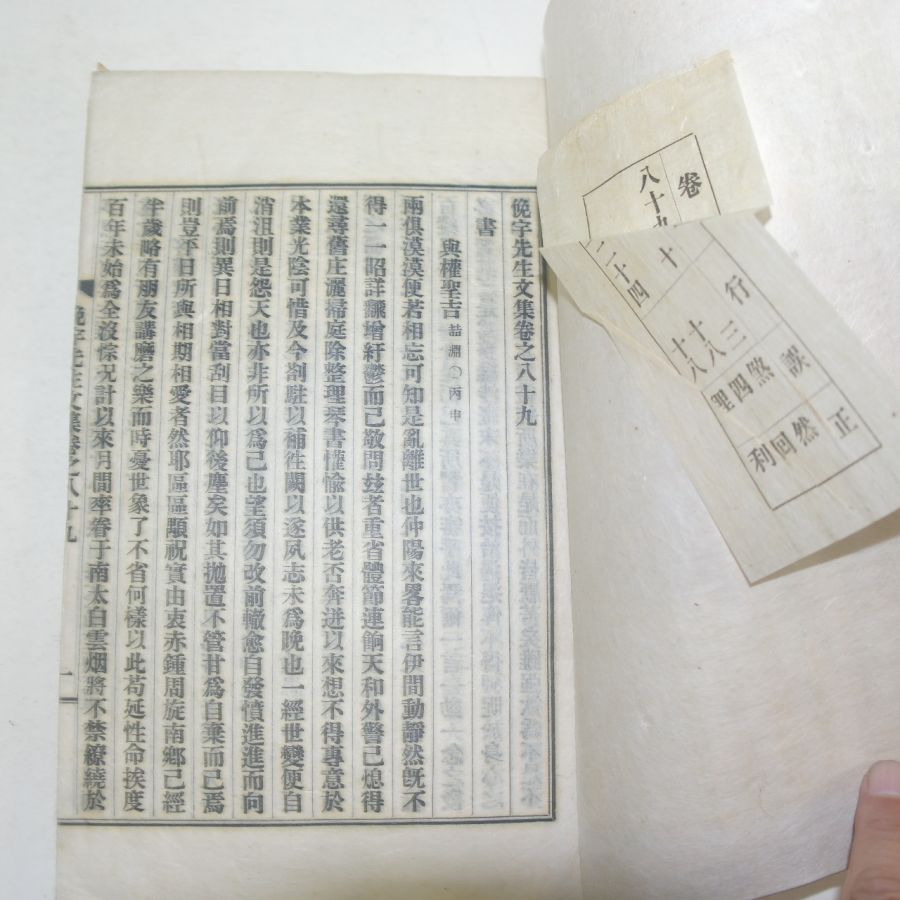 俛宇先生文集卷之八十九
書
與權聖吉 喆淵○丙申
兩俱漠漠便若相忘可知是亂離世也仲陽來畧能言伊間動靜然旣不
得一一昭詳鬱增紆鬱而已敬問玆者重省體節連餉天和外警已熄得
還尋舊庄灑掃庭除整理琴書懽愉以供老否奔迸以來想不得專意於
本業光陰可惜及今剳駐以補徃闕以遂夙志未爲晩也一經世變便自
消沮則是怨天也亦非所以爲己也望須勿改前轍愈自發憤進進而向
前焉則異日相對當刮目以仰後塵矣如其抛置不管甘爲自棄而已焉
則豈平日所與相期相愛者然耶區區顒祝實由衷赤鍾周旋南鄕已經
半歲略有朋友講磨之樂而時憂世象了不省何樣以此苟延性命挨度
百年未始爲全沒㑣况計以來月間率眷于南太白雲烟將不禁繚繞於
俛宇先生文集卷之八十九
一
卷
八十九
十
二十四
行
十三
十八
十八
誤
煞
四
聖
正
然
回
利